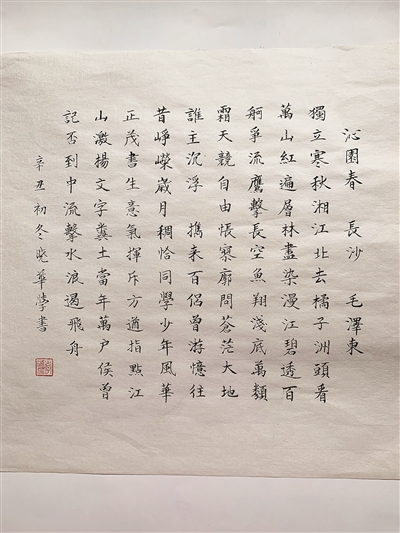 沁園春 長沙 毛澤東
獨立寒秋湘江北去橘子洲頭看
萬山紅遍層林盡染漫江碧透百
舸爭流鷹擊長空魚翔淺底萬類
霜天競自由悵寥廓問蒼茫大地
誰主沉浮 攜来百侶曾游憶往
昔崢嶸歲月稠恰同學少年風華
正茂書生意氣揮斥方遒指點江
山激揚文字糞土當年萬户侯曾
記否到中流擊水浪遏飛舟
辛丑初冬晓華書